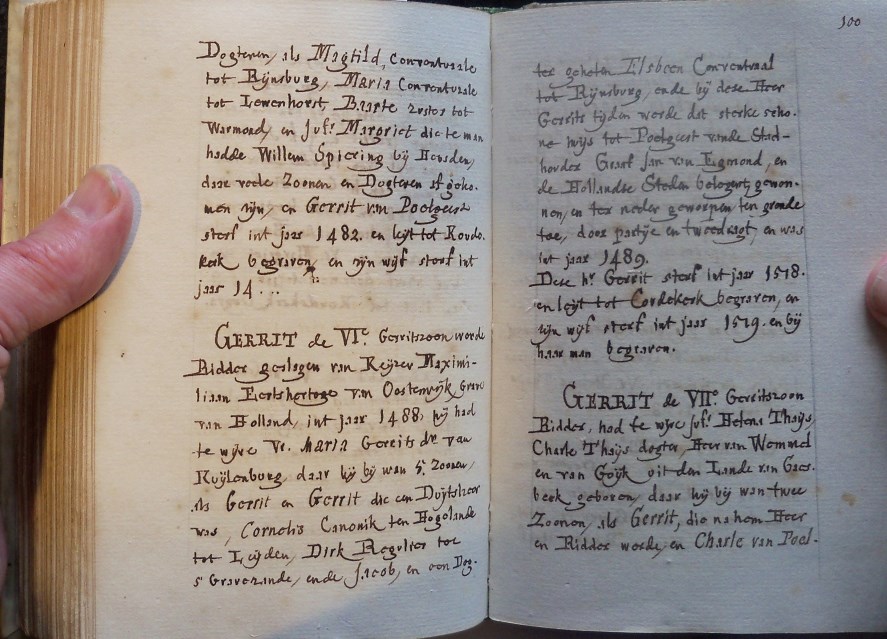 Dogteren, als Magtild, Conventuale
tot Rijnsburg, Maria Conventuale
tot Lewenhorst, Baarte zuster tot
Warmond, en Jufr. Margriet die te man
hadde Willem Spiering bij Heusden,
daar veele Zoonen en Dogteren af geko-
men zijn, en Gerrit van Poelgeest
sterf int jaar 1482. en leijt tot Koudekerk
kerk begraven, en zijn wijf sterf int
jaar 14...
GERRIT de VIe. Gerritszoon worde
Ridder geslagen van Keijzer Maximi-
liaan Eertshertoge van Oostenrijk Grave
van Holland, int jaar 1488, hij had
te wijve Vr. Maria Gerrits dr. van
Kuijlenburg, daar hij bij wan 5. Zoonen,
als Gerrit en Gerrit die een Duijtsheer
was, Cornelis Canonik ten Hogelande
tot Leijden, Dirk Regulier toe
s'Gravezande, ende Jacob, en een Dog-
100
ter geheten Elsbeen Conventuaal
tot Rijnsburg, ende bij dese Heer
Gerrits tijden worde dat sterke scho-
ne huijs tot Poelgeest vande Stad-
houder Graaf Jan van Egmond, en
de Hollandse Steden belegert, gewon-
nen, en ter neder geworpen ten gronde
toe, door partije en tweedragt, en was
int jaar 1489.
Dese hr. Gerrit sterf int jaar 1518.
en leijt tot Cordekerk begraven, en
zijn wijf sterf int jaar 1519. en bij
haar man begraven.
GERRIT de VIIe. Gerritszoon
Ridder, had te wijve Jufr. Helena Thaijs,
Charle Thaijs dogter, Heer van Wemmel
en van Goijk uit den Lande van Gaes-
beek geboren, daar hij bij wan twee
Zoonen, als Gerrit, die na hem Heer
en Ridder worde, en Charle van Poel-